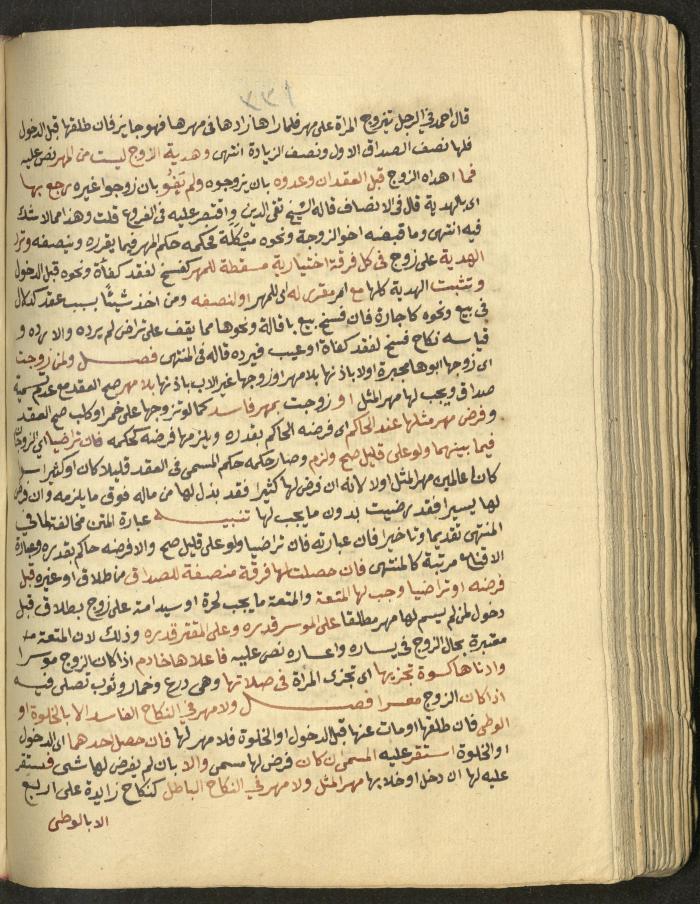 ١٣٣
قال احمد في الرجل يتزوج المراة على مهر فلما راها زادها في مهرها فهو جايز فان طلقها قبل الدخول
فلها نصف الصداق الاول ونصف الزيادة انتهى وهدية الزوج ليست من المهر نص عليه
فما اهداه الزوج قبل العقد ان وعدوه بان يزوجوه ولم يفوا بان زوجوا غيره رجع بها
اي بالهدية قال في الانصاف قاله الشيخ تقي الدين واقتصر عليه في الفروع قلت وهذا مما لا شك
فيه انتهى وما قبضه اخو الزوجة ونحوه فحكمه حكم المهر فيما يقرره وينصفه وترد
الهدية على زوج في كل فرقة اختيارية مسقطة للمهر كفسخ لفقد كفاة ونحوه قبل الدخول
وتثبت الهدية كلها مع امر مقرر له اي للمهر او لنصفه ومن اخذ شيئا بسبب عقد كدلال
في بيع ونحوه كاجارة فان فسخ بيع باقالة ونحوها مما يقف على تراض لم يرده والا رده و
قياسه نكاح فسخ لفقد كفاة او عيب فيرده قاله في المنتهى فصل ولمن زوجت
اي زوجها ابوها مجبرة او لا باذنها بلا مهر او زوجها غير الاب باذنها بلا مهر صح العقد مع عدم تسمية
صداق ويجب لها مهر المثل او زوجت بمهر فاسد كما لو تزوجها على خمر او كلب صح العقد
وفرض مهر مثلها عند الحاكم اي فرضه الحاكم بقدره ويلزمها فرضه كحكمه فان تراضيا اي الزوجان
فيما بينهما ولو على قليل صح ولزم وصار حكمه حكم المسمى في العقد قليلا كان او كثيرا سوا
كانا عالمين مهر المثل او لا لانه ان فرض لها كثيرا فقد بذل لها من ماله فوق ما يلزمه وان فرض
لها يسيرا فقد رضيت بدون ما يجب لها تنبيه عبارة المتن مخالفة لما في
المنتهى تقديما وتاخيرا فان عبارته فان تراضيا ولو على قليل صح والا فرضه حاكم بقدره وعبارة
الاقناع مرتبة كالمنتهى فان حصلت لها فرقة منصفة للصداق من طلاق او غيره قبل
فرضه او تراضيا وجب لها المتعة والمتعة ما يجب لحرة او سيد امة على زوج بطلاق قبل
دخول لمن لم يسم لها مهر مطلقا على الموسر قدره وعلى المقتر قدره وذلك لان المتعة
معتبرة بحال الزوج في يساره واعساره نص عليه فاعلاها خادم اذا كان الزوج موسرا
وادناها كسوة تجزيها اي تجزى المراة في صلاتها وهي درع وخمار وثوب تصلي فيه
اذا كان الزوج معسرا فصل ولا مهر في النكاح الفاسد الا بالخلوة او
الوطى فان طلقها او مات عنها قبل الدخول او الخلوة فلا مهر لها فان حصل احدهما اي الدخول
او الخلوة استقر عليه المسمى ان كان فرض لها مسمى والا بان لم يفرض لها شي فيستقر
عليه لها ان دخل او خلا بها مهر المثل ولا مهر في النكاح الباطل كنكاح زايدة على اربع
الا بالوطى